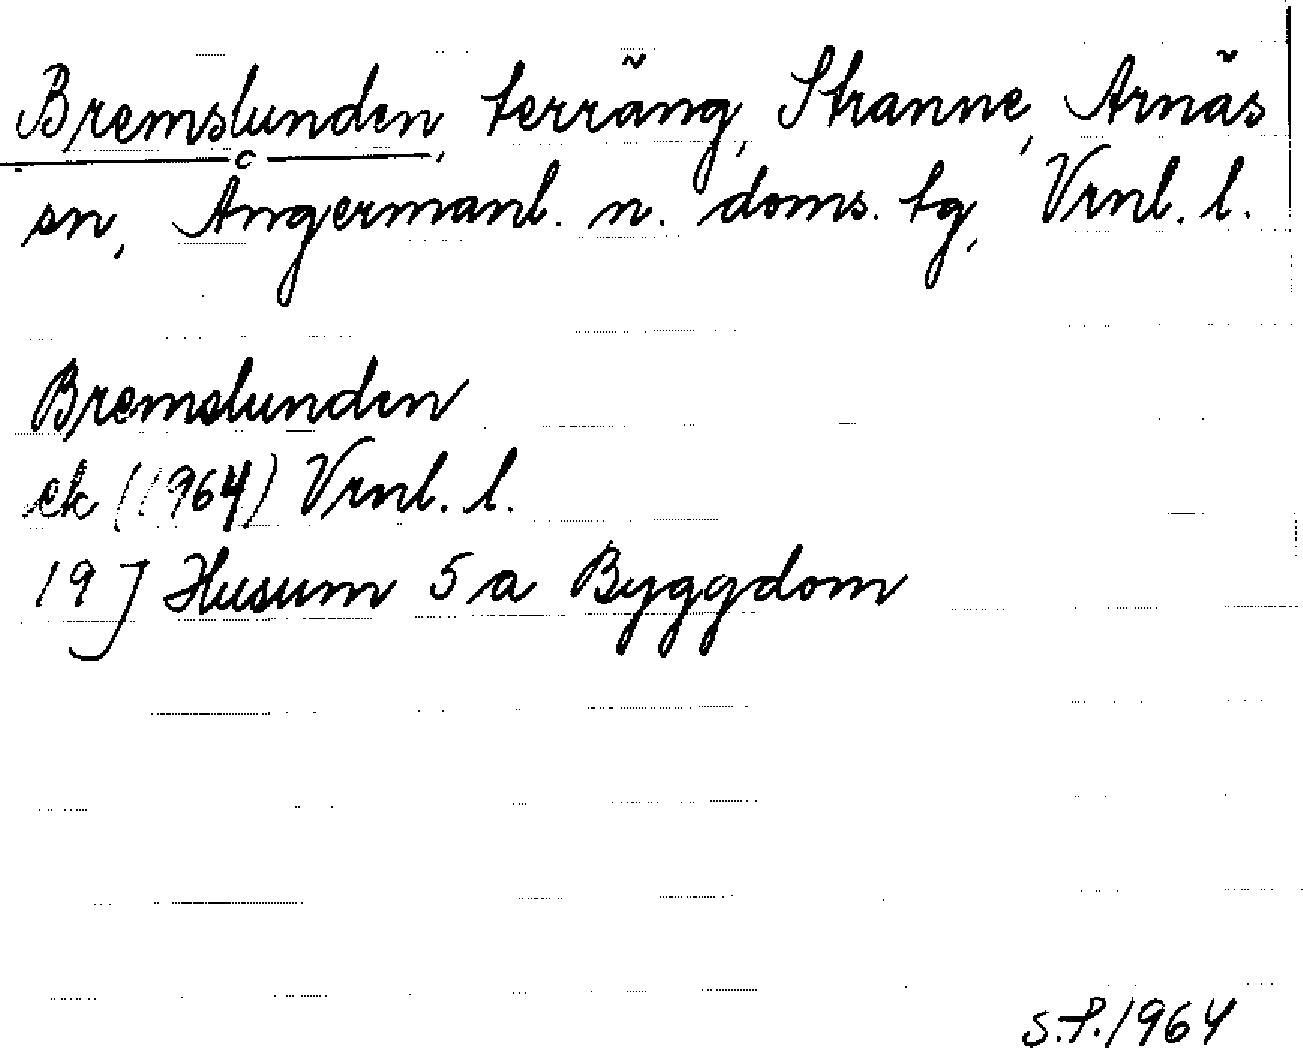 Bremslunden, terräng, Stranne, Arnäs
sn, Ångermanl. n. doms. tg, Vrnl. l.
Bremslunden
ek (1964) Vrnl. l.
19 J Husum 5 a Byggdom
S.P. 1964